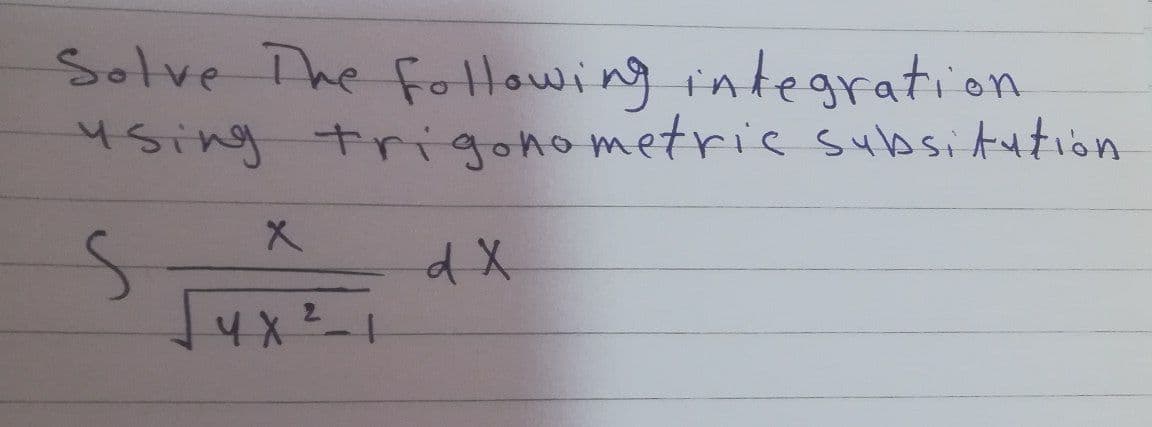 Solve The following integration
using trigonometric subsitution
∫ x / √4x²-1 dx